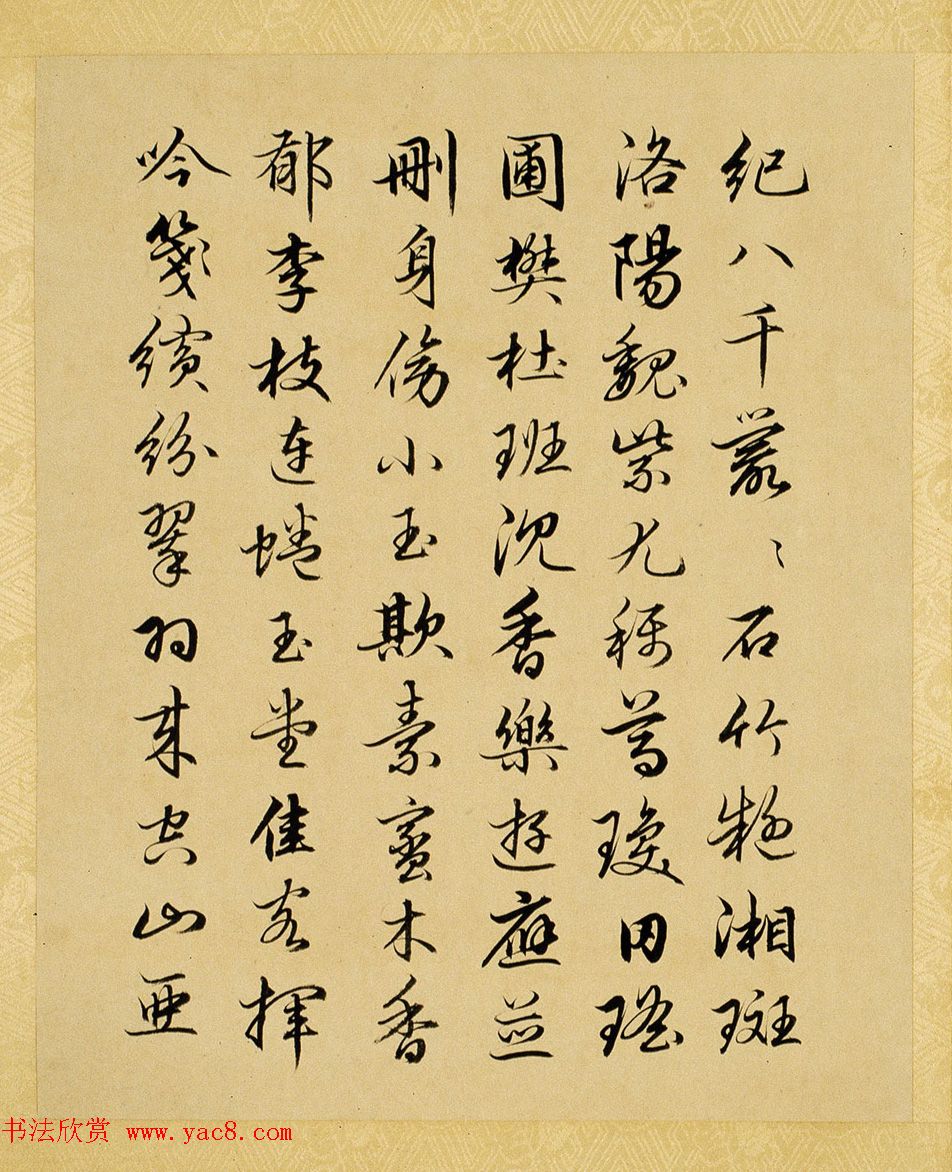 紀八千叢〻石竹艷湘斑
洛陽魏紫尤稱尊瓊田瑤
圃樊杜班沉香樂遊應並
刪身傍小玉欺素蠻木香
郁李枝連蜷玉堂佳客揮
吟箋繽紛翠羽來空山亞
书法欣赏 www.yac8.com